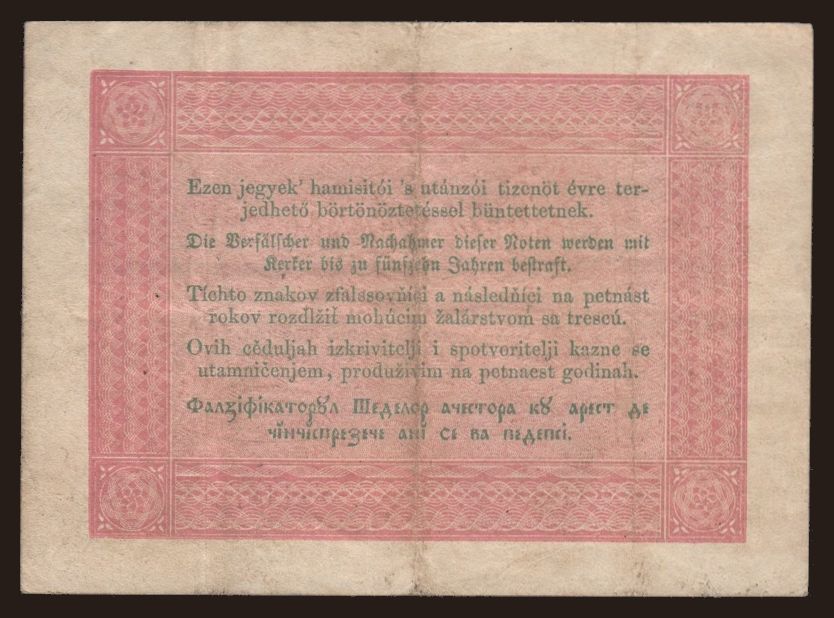 Ezen jegyek' hamisitói 's utánzói tizenöt évre ter-
jedhető börtönöztetéssel büntettetnek.
Die Verfälscher und Nachahmer dieser Noten werden mit
Kerker bis zu fünfzehn Jahren bestraft.
Tíchto znakov zfalssovňíci a následňíci na petnást
rokov rozdlžiť mohúcim žalárstvom sa trescú.
Ovih cěduljah izkrivitelji i spotvoritelji kazne se
utamničenjem, produživim na petnaest godinah.
Фалꙁіфікаторꙋл Шеделор ачестора кꙋ арест де
чінчіспреꙁече ані се ва педепсі.